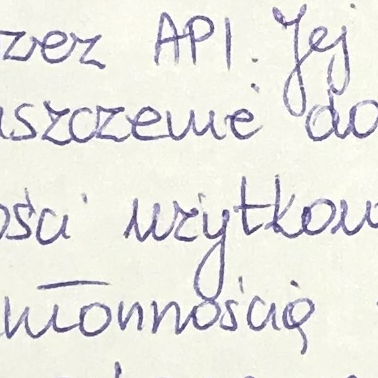 rzez API. Jej
uszczenie do
ości użytkow
skłonnością